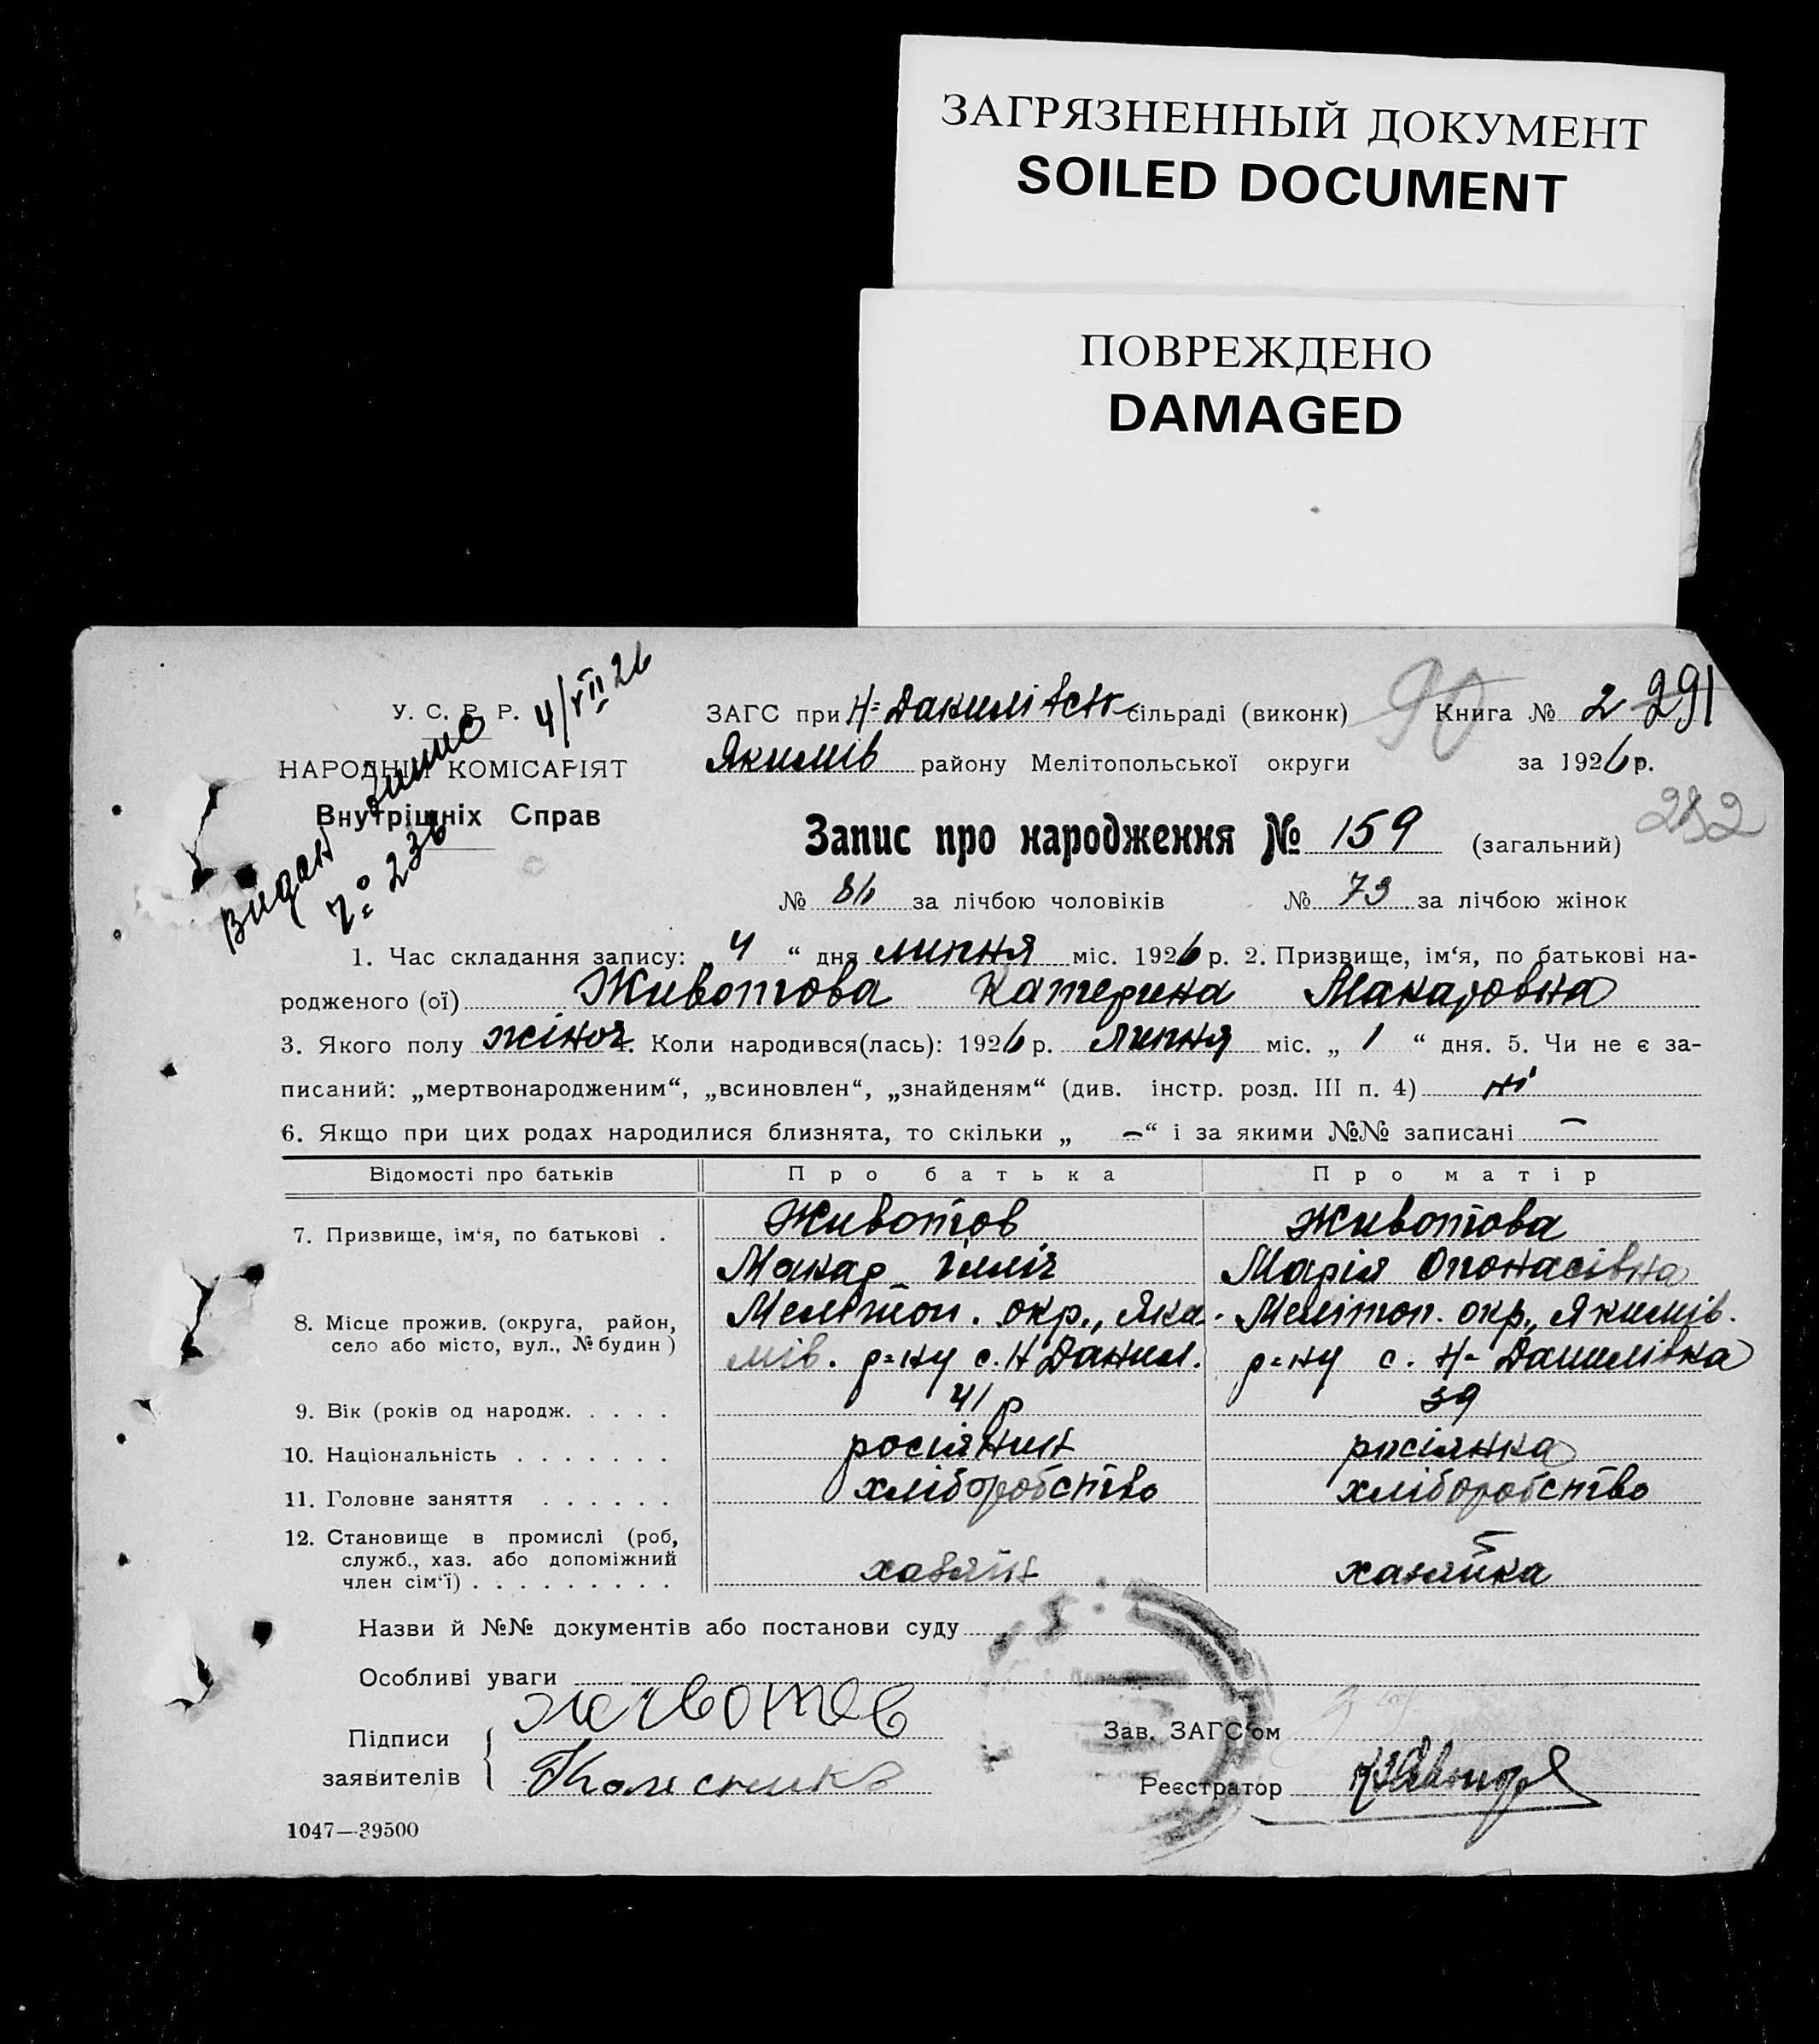 ЗАГРЯЗНЕННЫЙ ДОКУМЕНТ
SOILED DOCUMENT
ПОВРЕЖДЕНО
DAMAGED
У. С. Р. Р. 4/VII 26
ЗАГС при Н=Данилівськ сільраді (виконк) 90 Книга № 2 291
НАРОДНІЙ КОМІСАРІЯТ
Якимів району Мелітопольської округи за 1926 р.
Внутрішніх Справ
Видан
№ 236
Запис про народження № 159 (загальний) 282
№ 86 за лічбою чоловіків № 73 за лічбою жінок
1. Час складання запису: „ 4 “ дня липня міс. 1926 р. 2. Призвище, ім‘я, по батькові на-
родженого (ої) Животова Катерина Макаровна
3. Якого полу жіноч. 4. Коли народився(лась): 1926 р. липня міс. „ 1 “ дня. 5. Чи не є за-
писаний: „мертвонародженим“, „всиновлен“, „знайденям“ (див. інстр. розд. III п. 4) ні
6. Якщо при цих родах народилися близнята, то скільки „ — “ і за якими №№ записані —
Відомості про батьків Про батька Про матір
7. Призвище, ім‘я, по батькові . Животов Животова
Макар Ілліч Марія Опонасівна
8. Місце прожив. (округа, район, Мелітоп. окр., Яки- Мелітоп. окр., Якимів.
село або місто, вул., № будин) мів. р=ну с. Н Данил. р=ну с. Н- Данилівка
9. Вік (років од народж. . . . . 41 р 39
10. Національність . . . . . . . росіянин росіянка
11. Головне заняття . . . . . . хліборобство хліборобство
12. Становище в промислі (роб,
служб., хаз. або допоміжний
член сім‘ї) . . . . . . . . . хазяїн хазяйка
Назви й №№ документів або постанови суду
Особливі уваги
Підписи Животов
Зав. ЗАГС‘ом
заявителів Колесник
Реєстратор
1047—39500